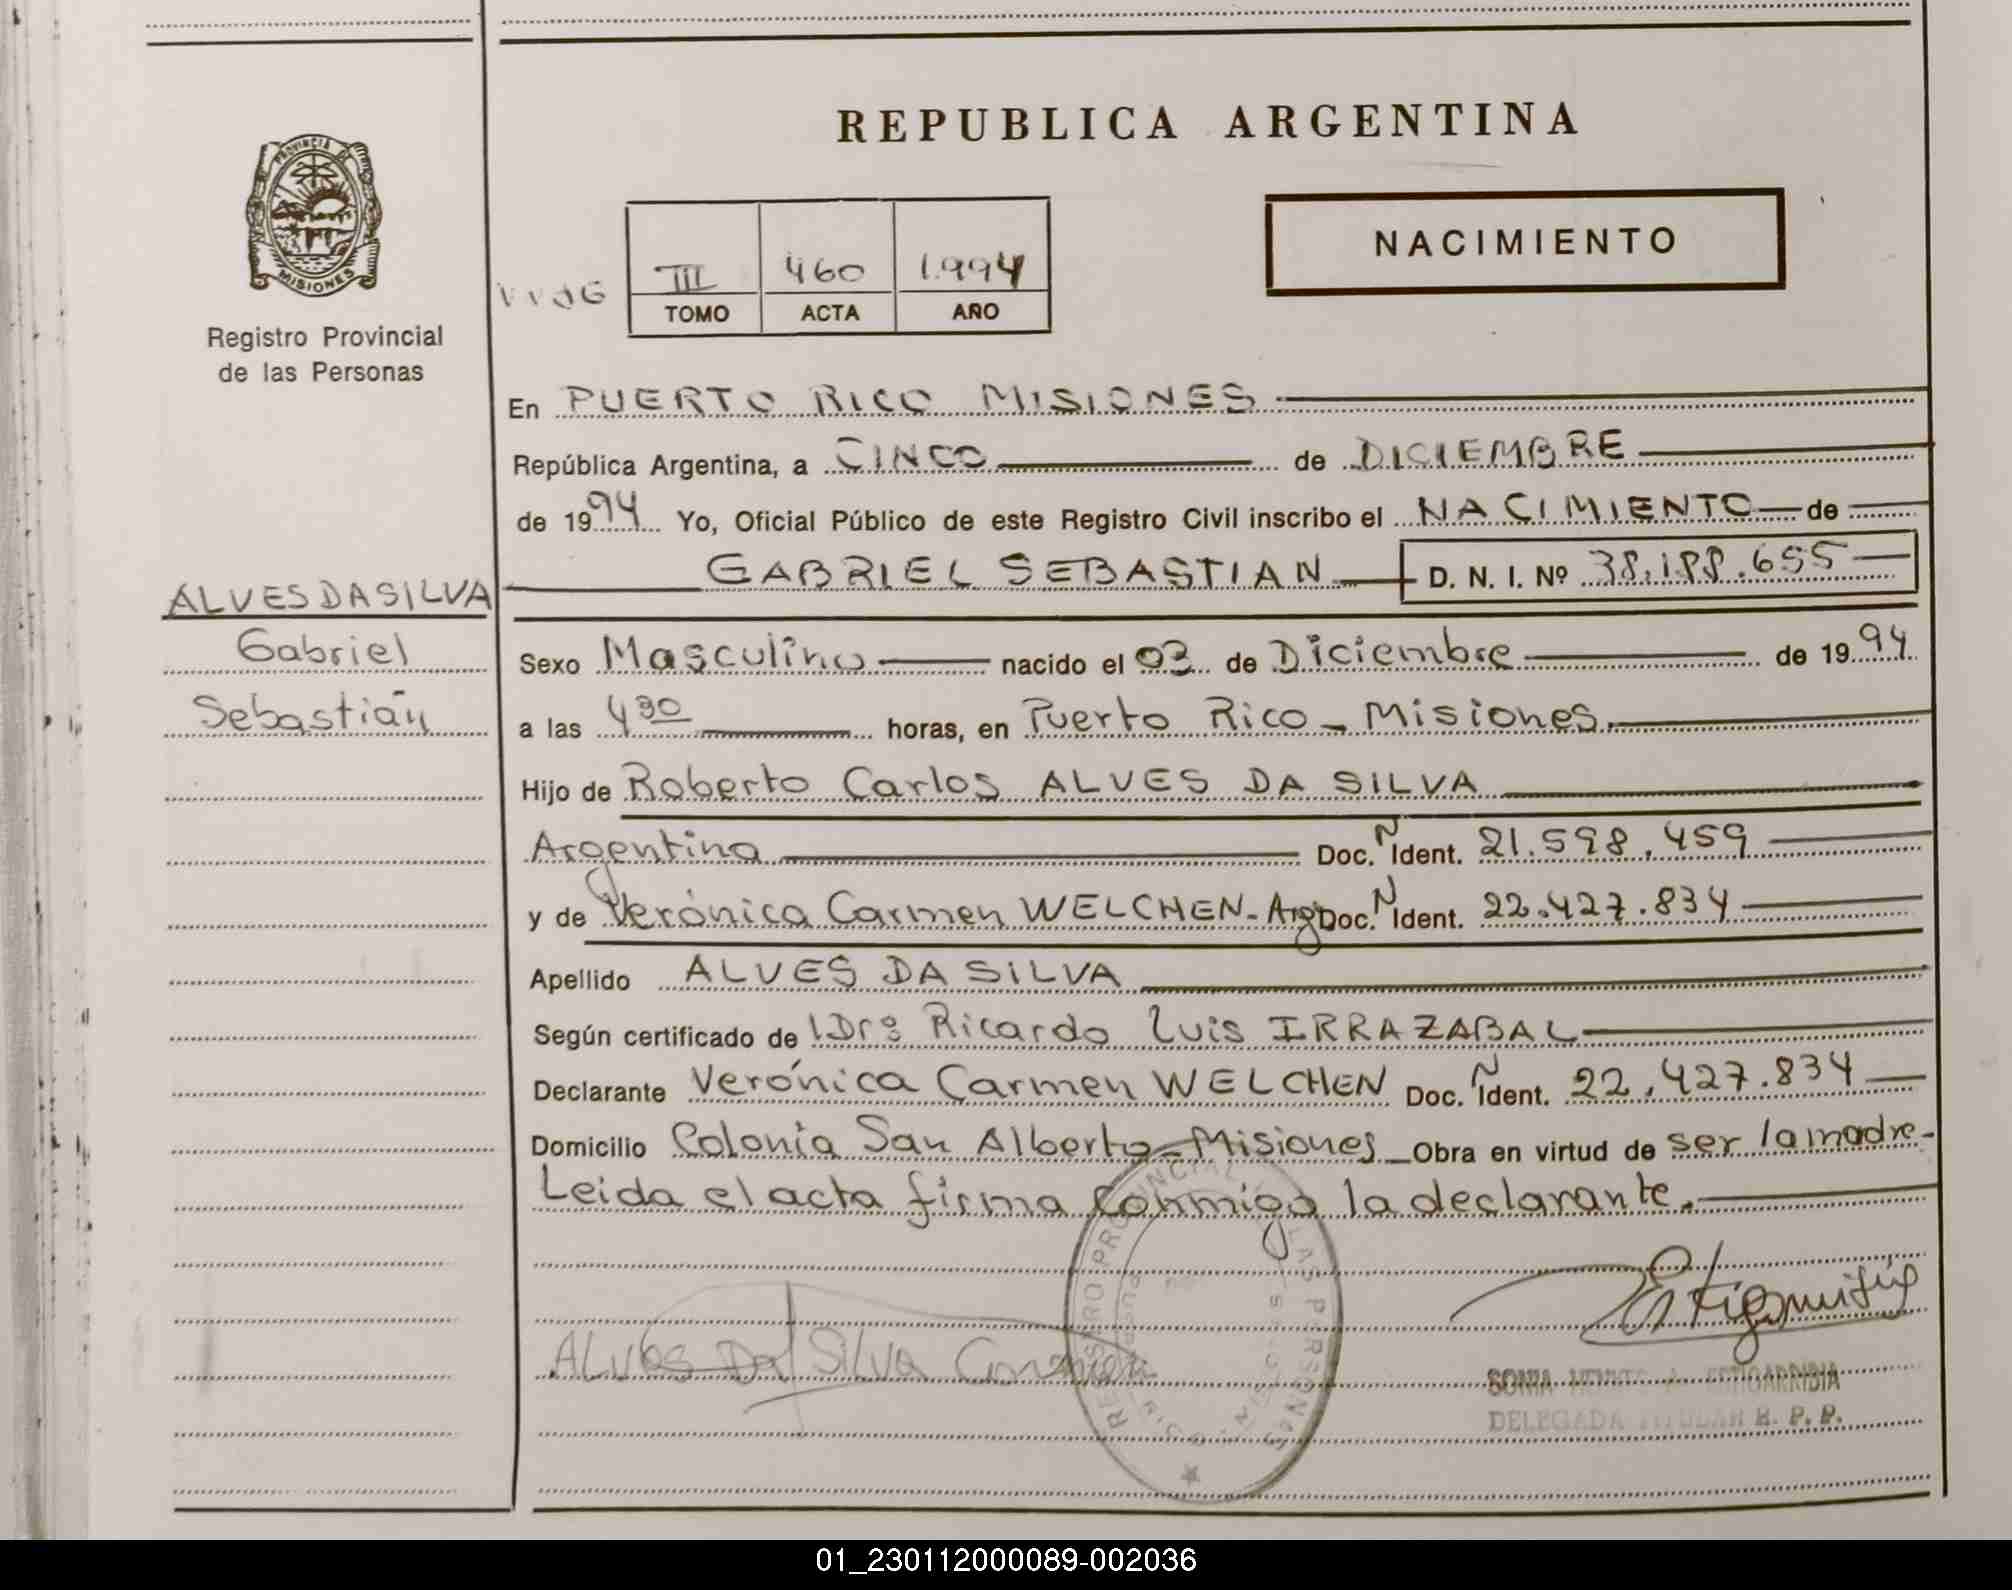 REPUBLICA ARGENTINA
PROVINCIA DE
MISIONES
Registro Provincial
de las Personas
NACIMIENTO
III 460 1.994
TOMO ACTA AÑO
En PUERTO RICO MISIONES
República Argentina, a CINCO de DICIEMBRE
de 1994 Yo, Oficial Público de este Registro Civil inscribo el NACIMIENTO de
GABRIEL SEBASTIAN D. N. I. Nº 38.188.655
ALVES DA SILVA
Gabriel
Sebastián
Sexo Masculino nacido el 03 de Diciembre de 1994
a las 4 30 horas, en Puerto Rico - Misiones.
Hijo de Roberto Carlos ALVES DA SILVA
Argentina Doc. N Ident. 21.598.459
y de Verónica Carmen WELCHEN - Arg Doc. N Ident. 22.427.834
Apellido ALVES DA SILVA
Según certificado de Dr: Ricardo Luis IRRAZABAL
Declarante Verónica Carmen WELCHEN Doc. N Ident. 22.427.834
Domicilio Colonia San Alberto - Misiones Obra en virtud de ser la madre -
Leida el acta firma conmigo la declarante.
REGISTRO PROVINCIAL LAS PERSONAS
ALVES DA SILVA
SONIA
DELEGADA TITULAR R. P. P.
01_230112000089-002036